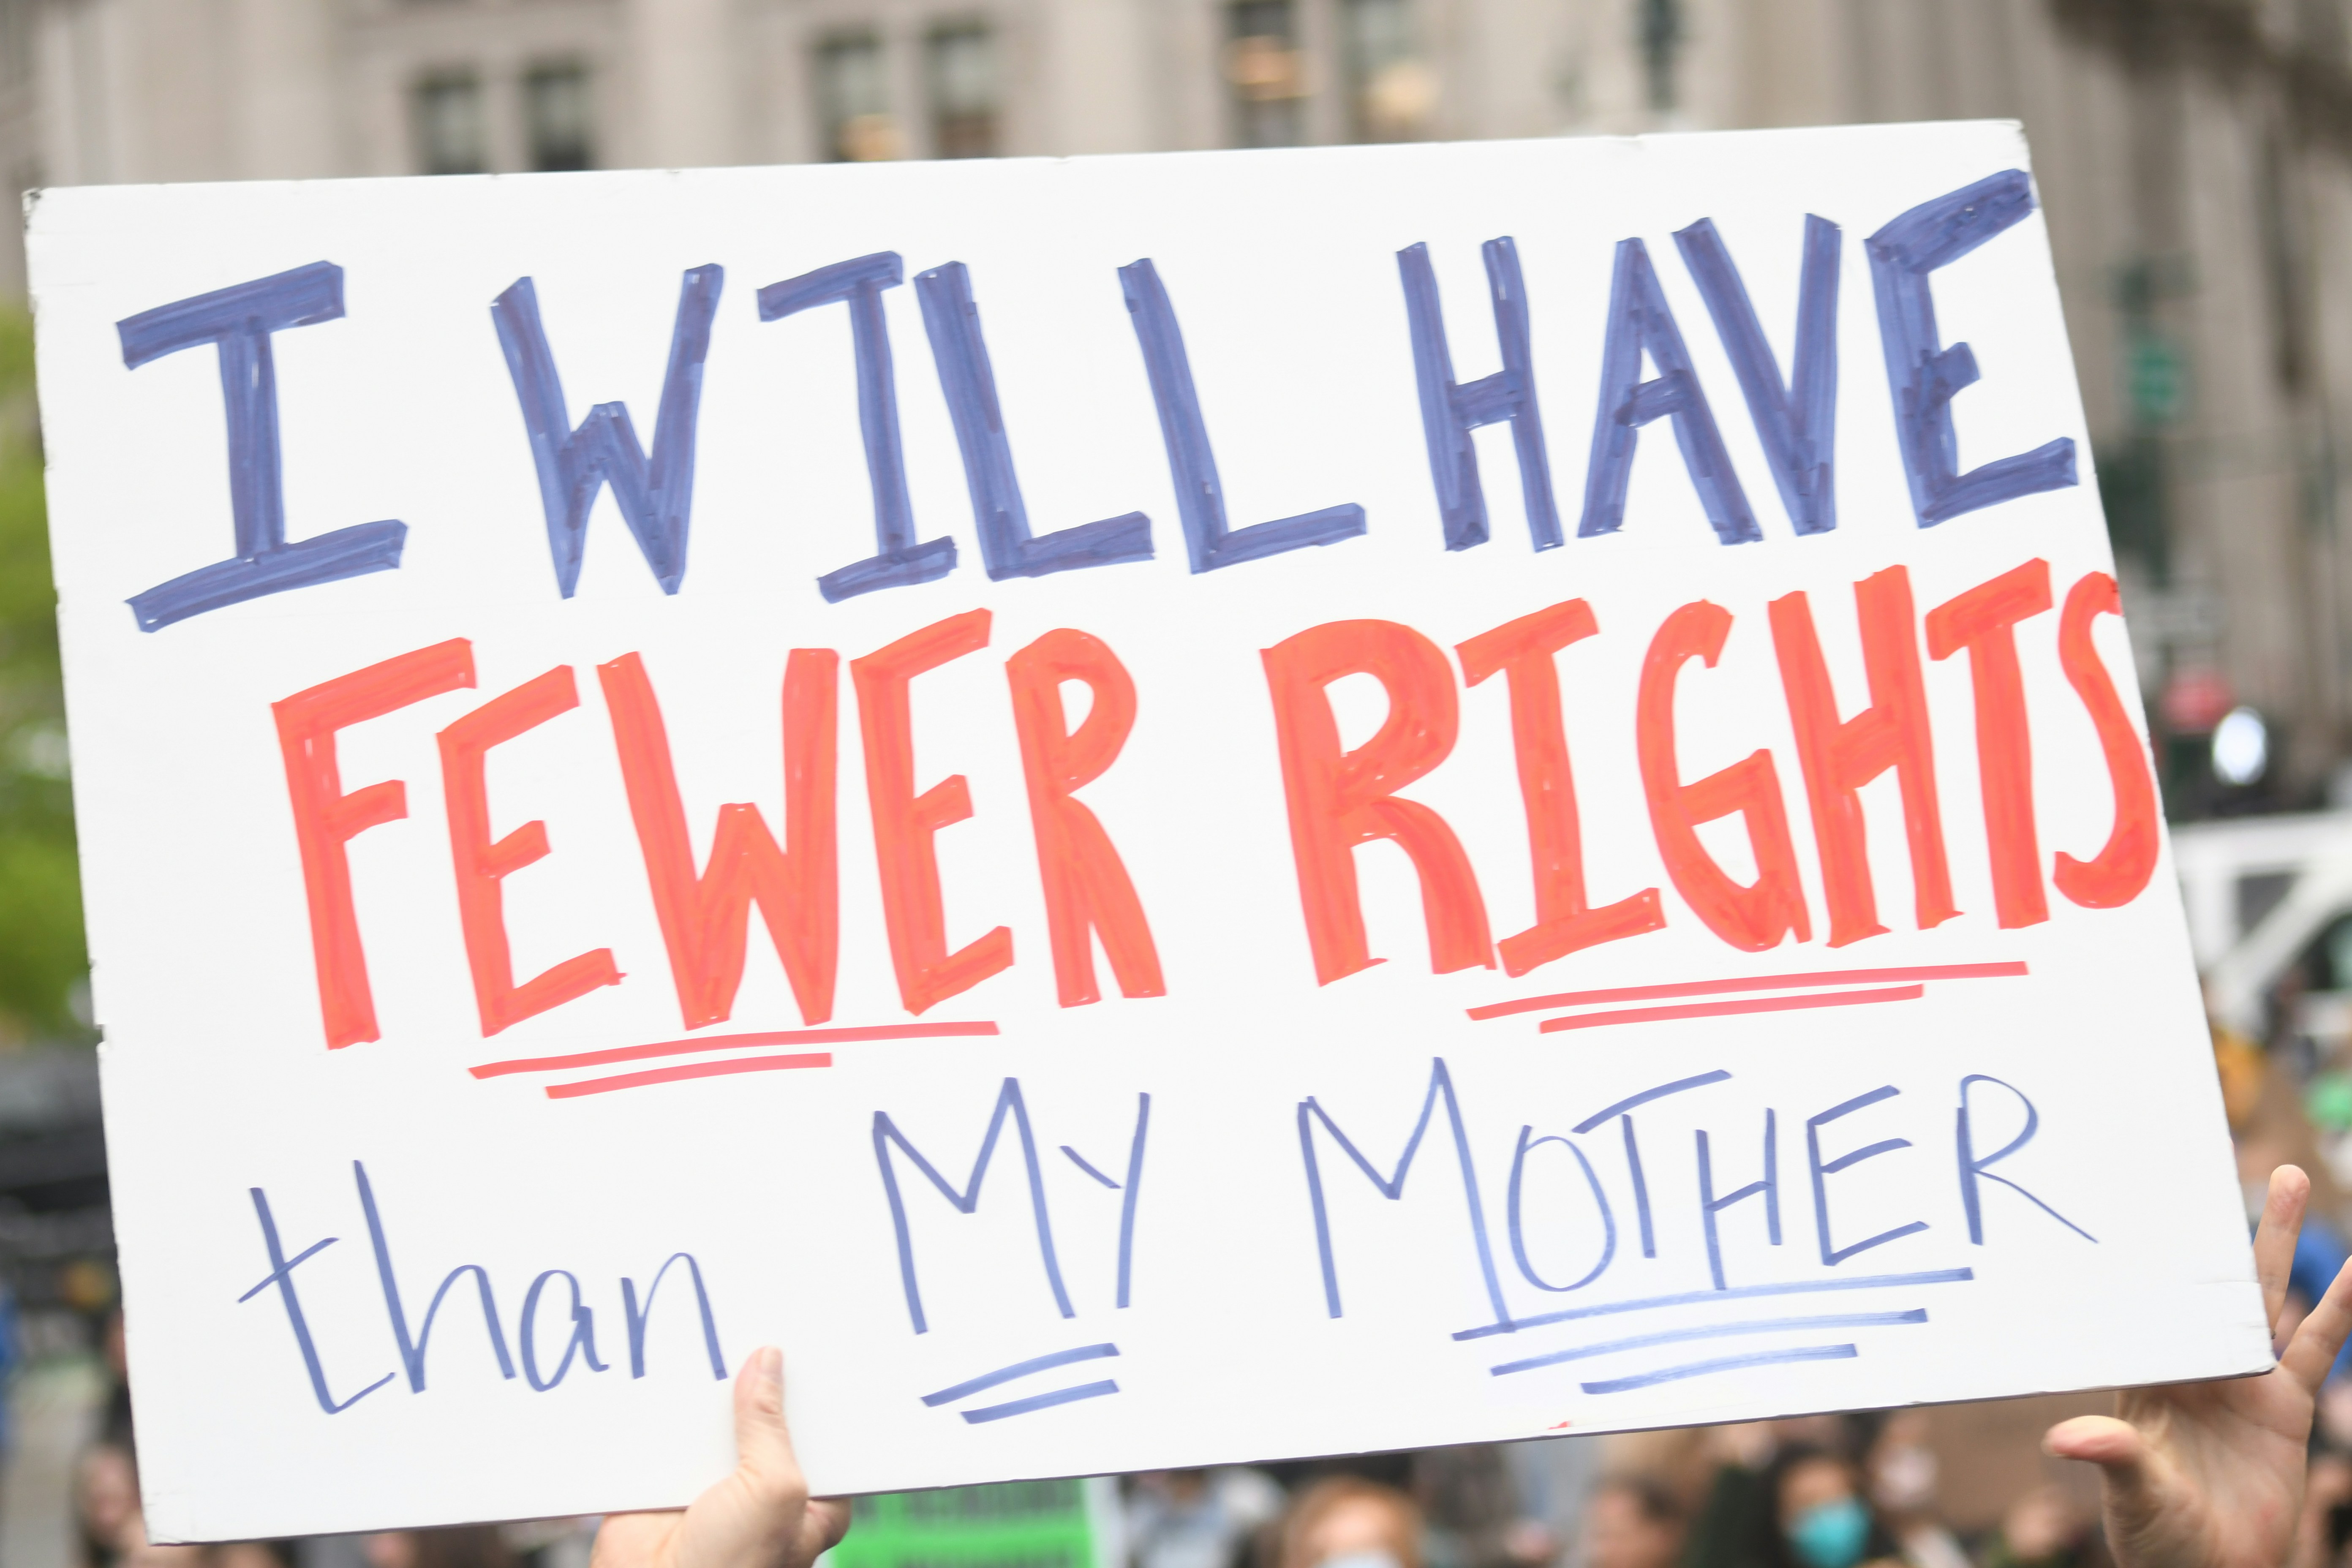 I WILL HAVE
FEWER RIGHTS
than MY MOTHER